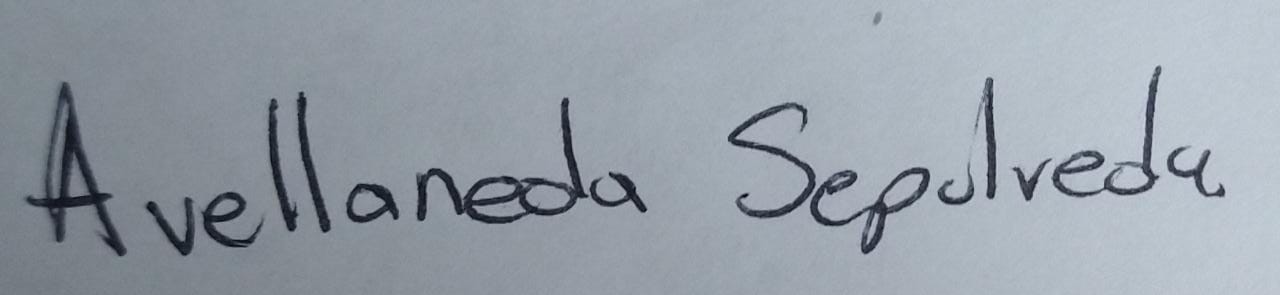 Avellaneda Sepulveda